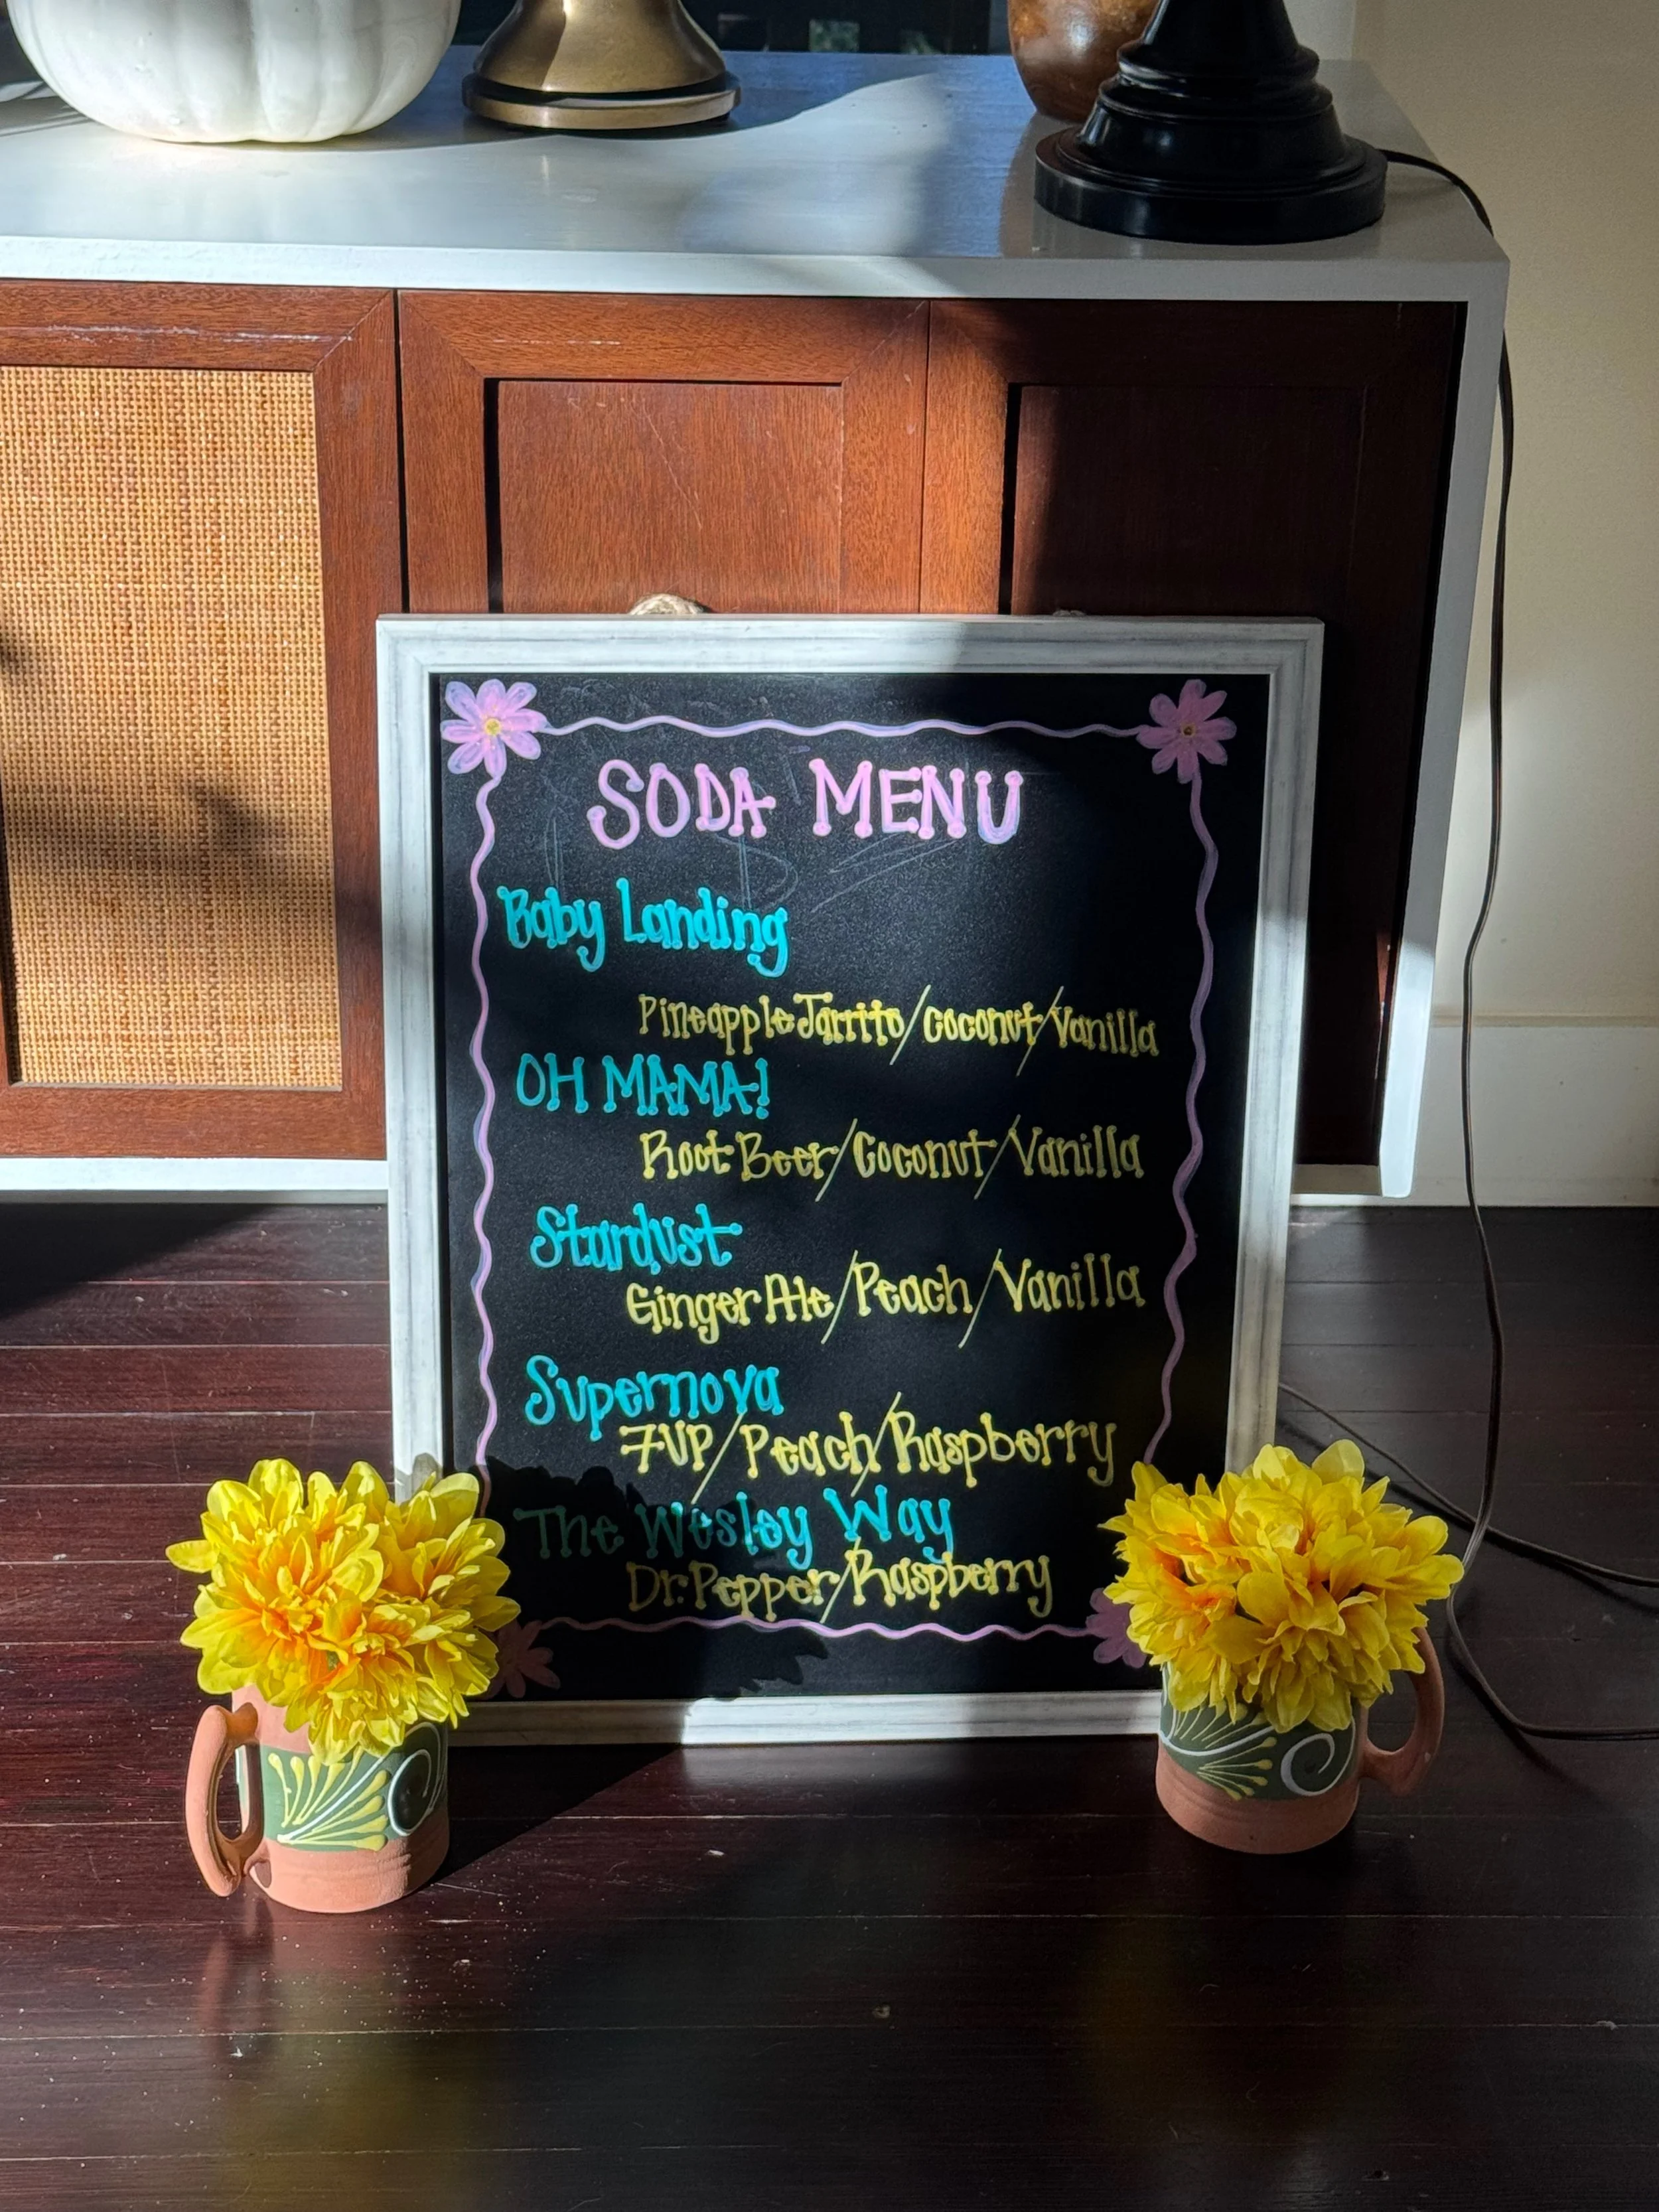 SODA MENU
Baby Landing
Pineapple Jarrito/Coconut/Vanilla
OH MAMA!
Root Beer/Coconut/Vanilla
Stardust
Ginger Ale/Peach/Vanilla
Supernova
7UP/Peach/Raspberry
The Wesley Way
Dr. Pepper/Raspberry